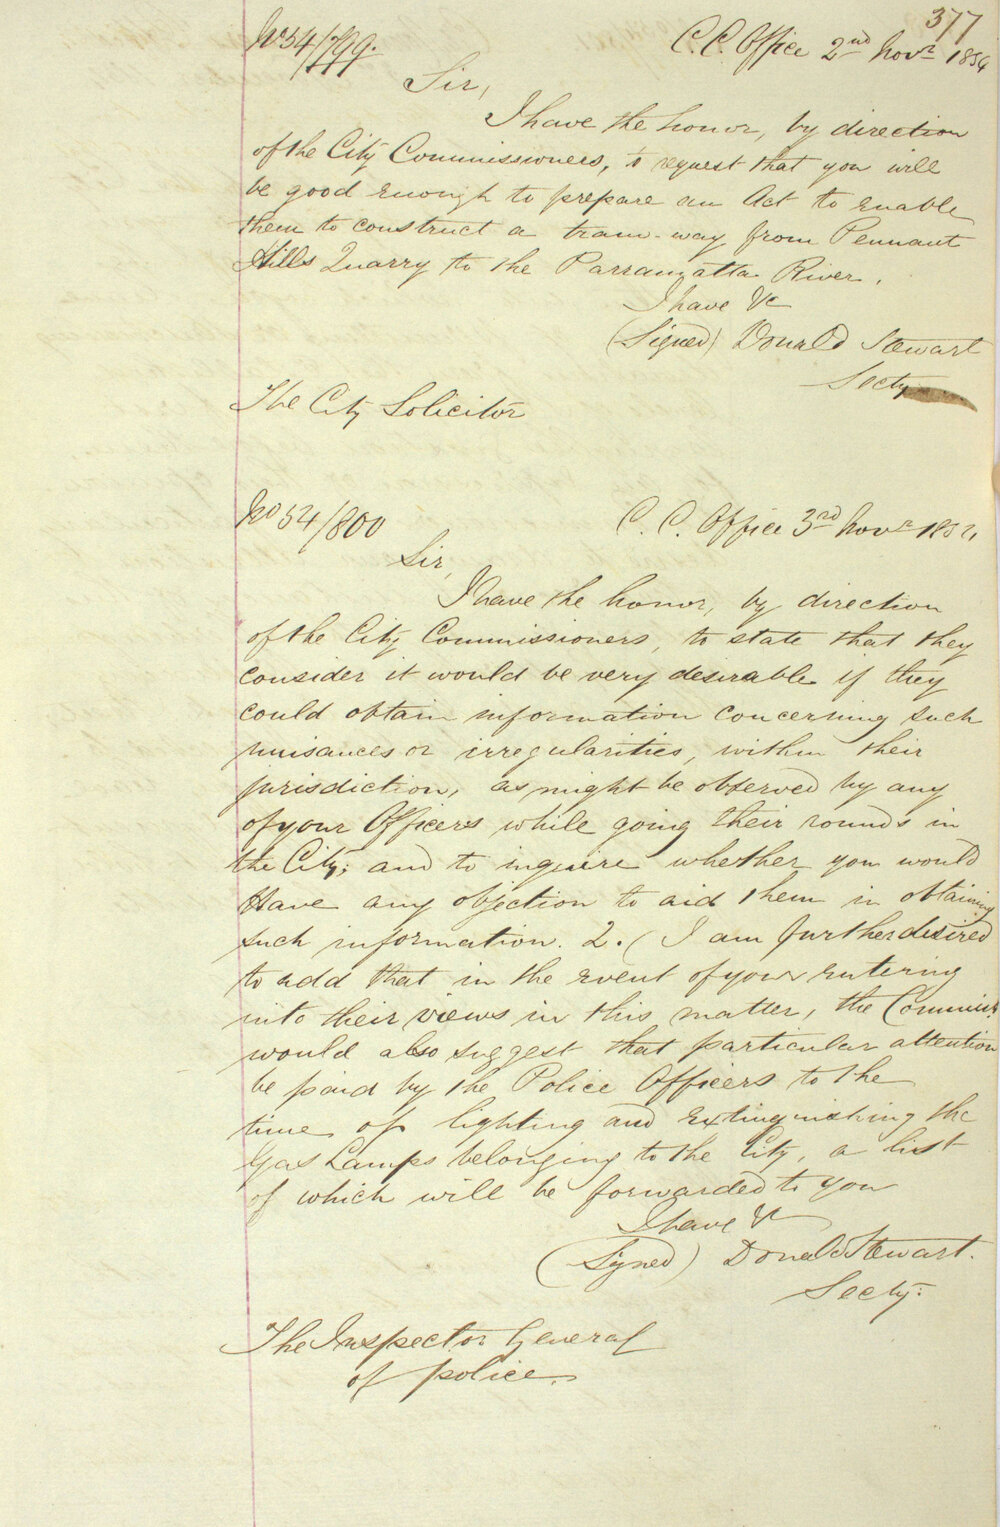 377
No 54/799.
C. C. Office 2nd Novr 1854
Sir,
I have the honor, by direction
of the City Commissioners, to request that you will
be good enough to prepare an Act to enable
them to construct a tram-way from Pennant
Hills Quarry to the Parramatta River.
I have &c
(Signed) Donald Stewart
Secty
The City Solicitor
No 54/800
C. C. Office 3rd Novr 1854
Sir,
I have the honor, by direction
of the City Commissioners, to state that they
consider it would be very desirable if they
could obtain information concerning such
nuisances or irregularities, within their
jurisdiction, as might be observed by any
of your Officers while going their rounds in
the City; and to inquire whether you would
Have any objection to aid them in obtaining
such information. 2. (I am further desired
to add that in the event of your entering
into their views in this matter, the Commissrs
would also suggest that particular attention
be paid by the Police Officers to the
time of lighting and extinguishing the
Gas Lamps belonging to the City, a list
of which will be forwarded to you
I have &c
(Signed) Donald Stewart.
Secty.
The Inspector General
of police.